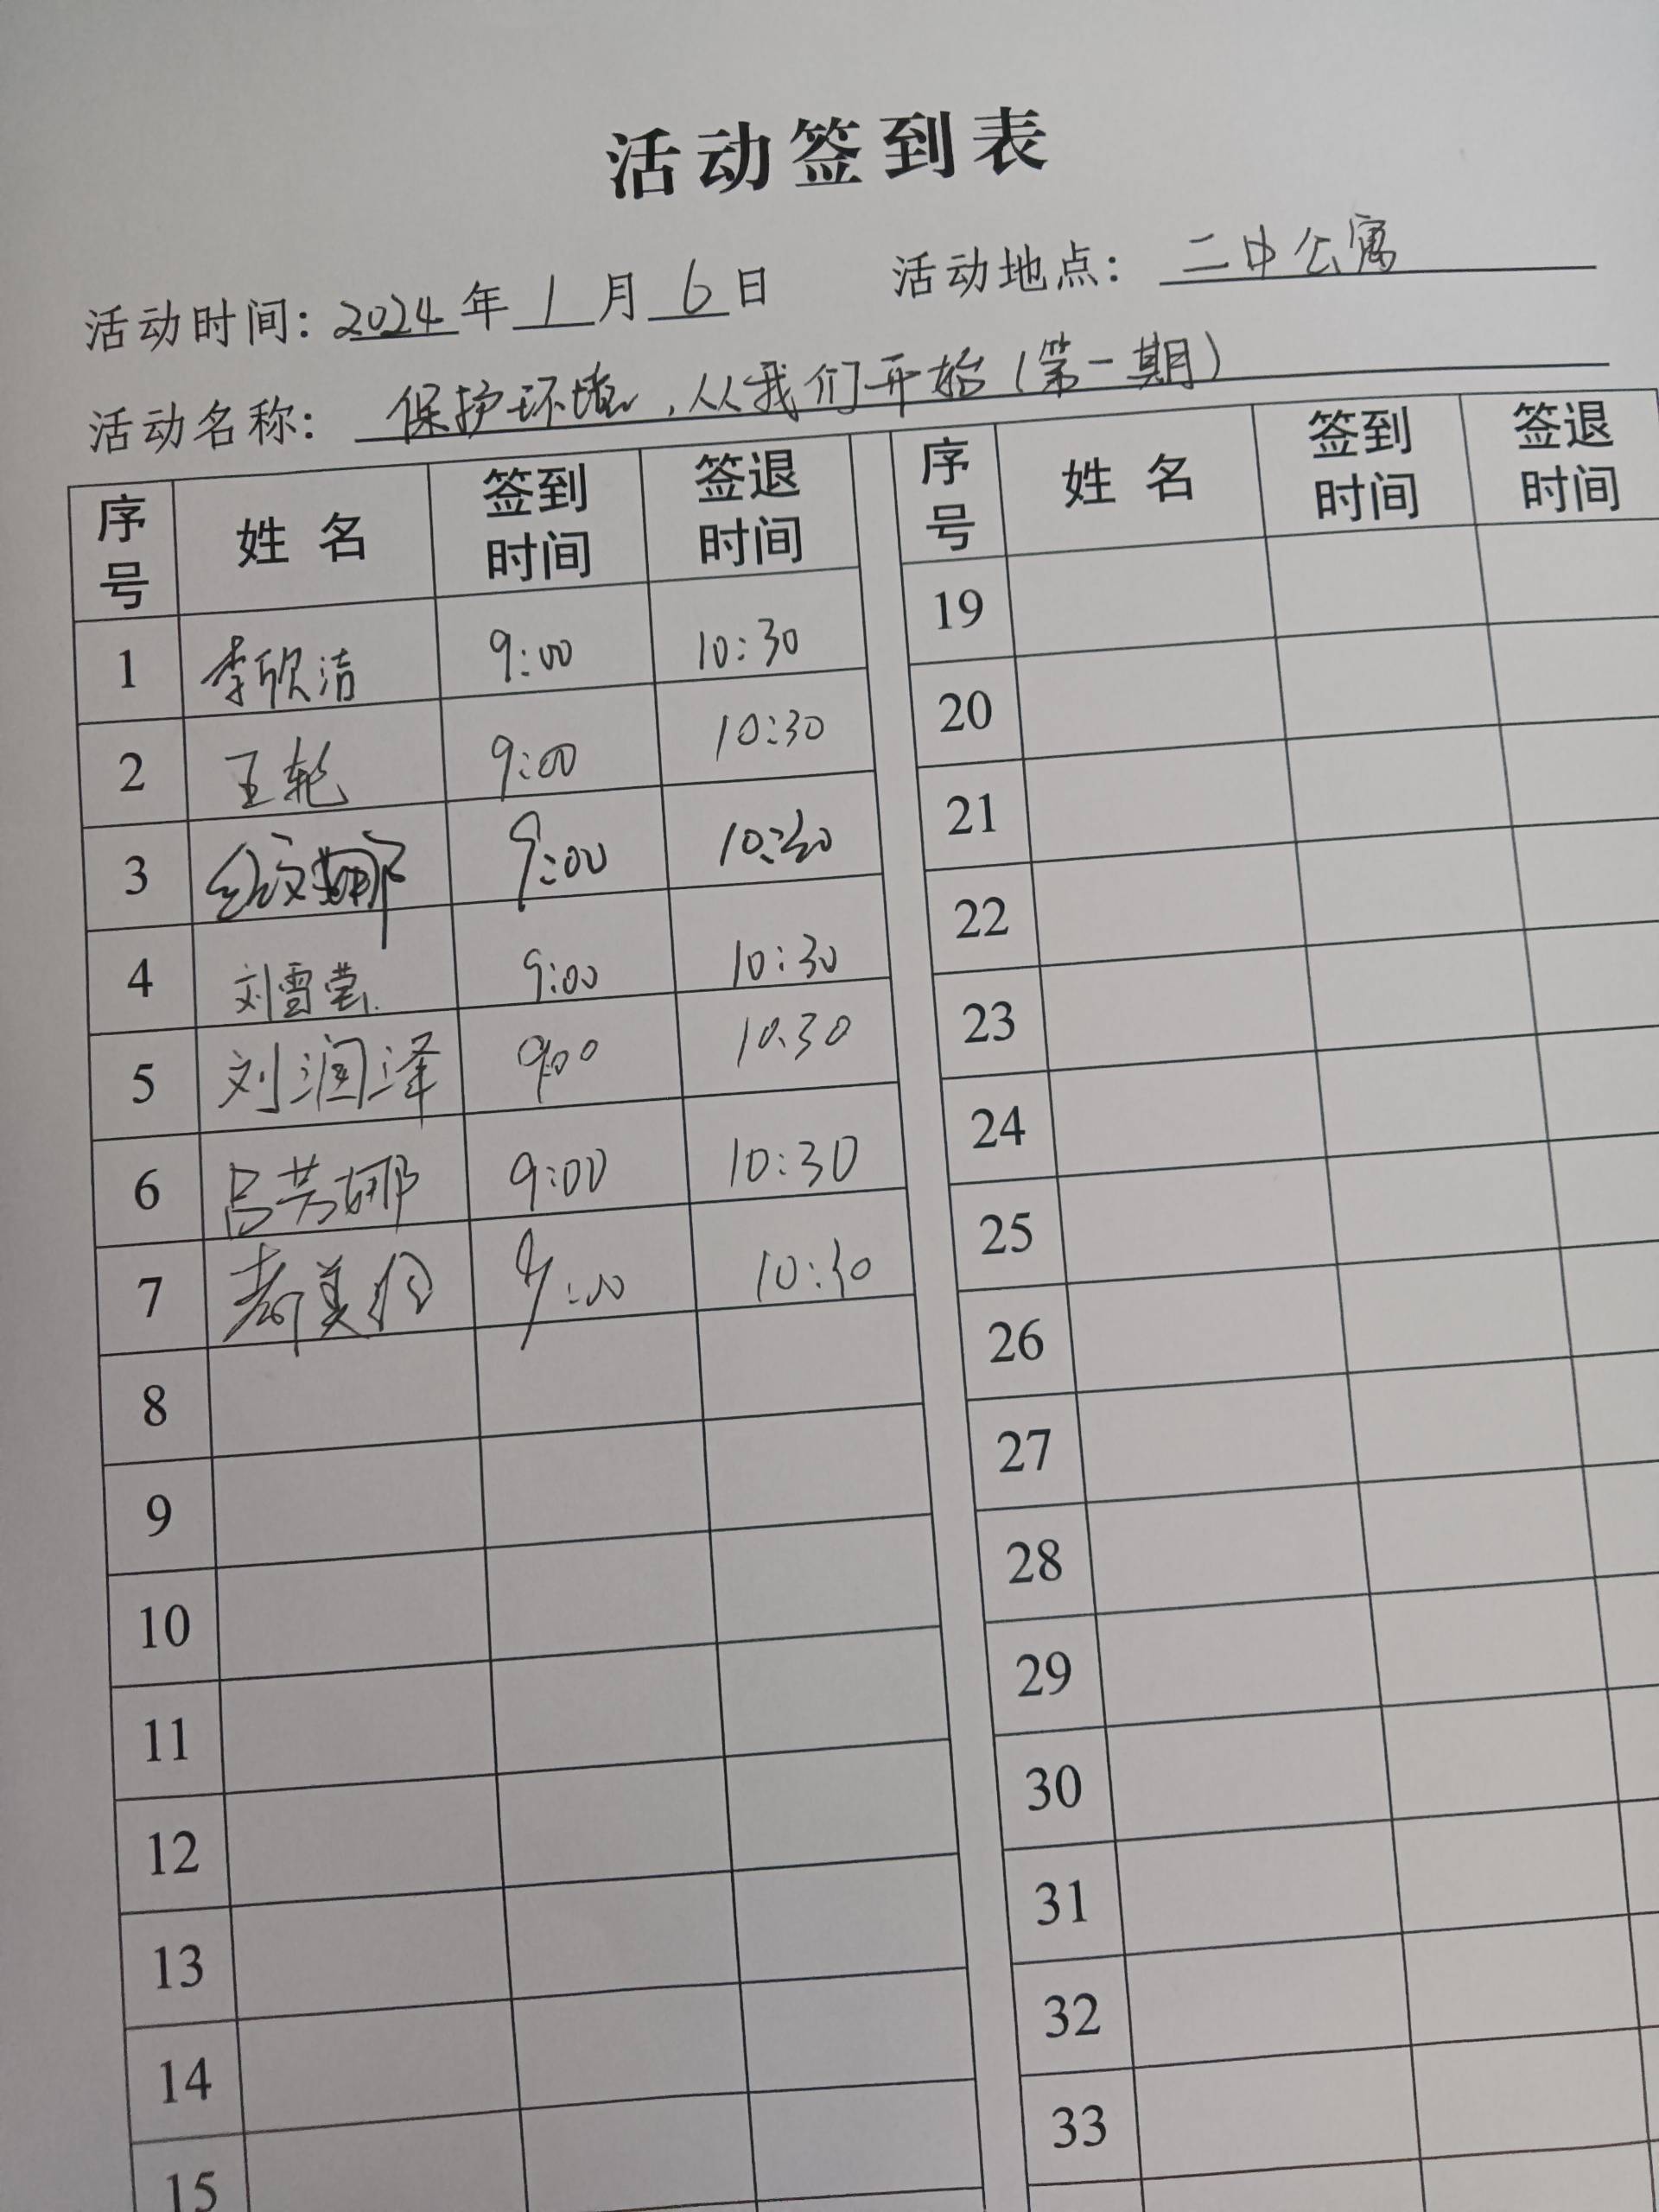 活动签到表
活动时间: 2024年1月6日 活动地点: 二中公寓
活动名称: 保护环境,从我们开始(第一期)
序号 姓名 签到时间 签退时间 序号 姓名 签到时间 签退时间
1 李欣洁 9:00 10:30 19
2 王轮 9:00 10:30 20
3 9:00 10:30 21
4 刘雪莹 9:00 10:30 22
5 刘润泽 9:00 10:30 23
6 吕芳娜 9:00 10:30 24
7 郝美 9:00 10:30 25
8 26
9 27
10 28
11 29
12 30
13 31
14 32
15 33